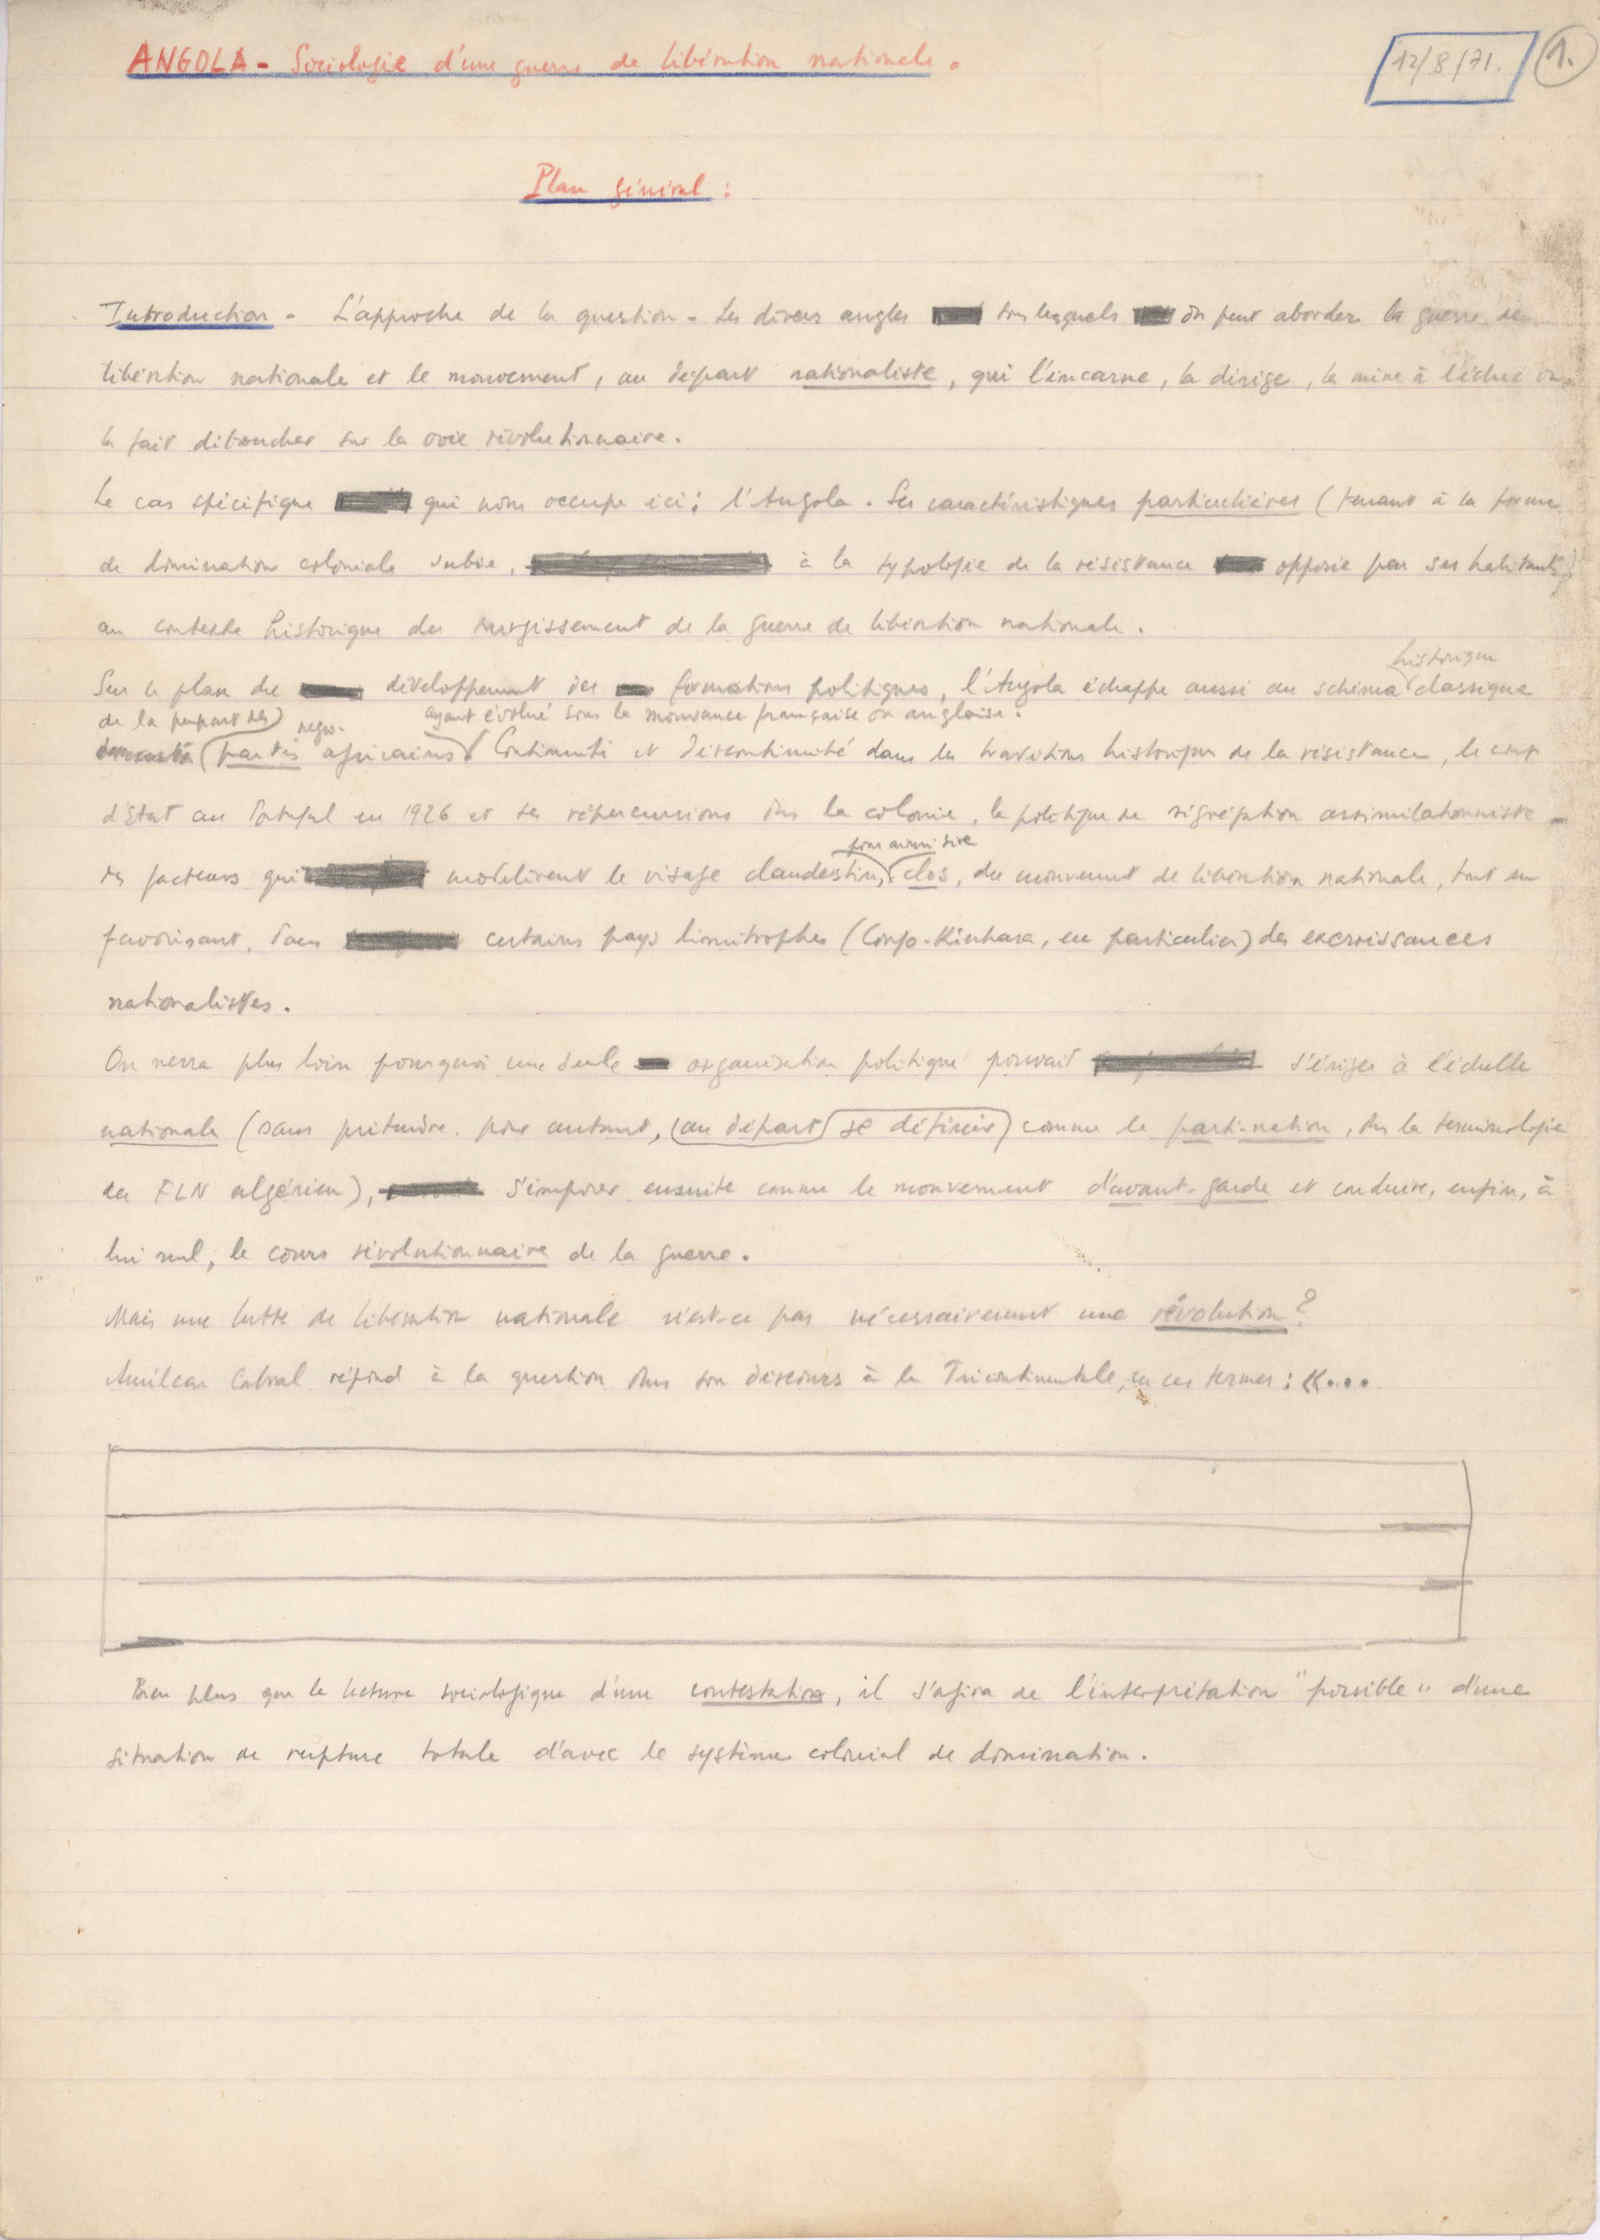 ANGOLA - Sociologie d'une guerre de libération nationale.
12/8/71.
1.
Plan général :
Introduction - L'approche de la question - Les divers angles sous lesquels on peut aborder la guerre de
libération nationale et le mouvement, au départ nationaliste, qui l'incarne, la dirige, la mène à l'échec ou
la fait déboucher sur la voie révolutionnaire.
Le cas spécifique qui nous occupe ici : l'Angola. Ses caractéristiques particulières (tenant à la forme
de domination coloniale subie, à la typologie de la résistance opposée par ses habitants)
au contexte historique du surgissement de la guerre de libération nationale.
historique
Sur le plan du développement des formations politiques, l'Angola échappe aussi au schéma classique
de la plupart des négro- ayant évolué sous la mouvance française ou anglaise.
partis africains Continuité et discontinuité dans les traditions historiques de la résistance, le coup
d'Etat au Portugal en 1926 et ses répercussions dans la colonie, la politique de ségrégation assimilationniste -
des facteurs qui modelèrent le visage clandestin, pour ainsi dire clos, du mouvement de libération nationale, tout en
favorisant, dans certains pays limitrophes (Congo-Kinshasa, en particulier) des excroissances
nationalistes.
On verra plus loin pourquoi une seule organisation politique pouvait s'ériger à l'échelle
nationale (sans prétendre pour autant, (au départ) se définir) comme le parti-nation, dans la terminologie
du FLN algérien), s'imposer ensuite comme le mouvement d'avant-garde et conduire, enfin, à
lui seul, le cours révolutionnaire de la guerre.
Mais une lutte de libération nationale n'est-ce pas nécessairement une révolution ?
Amilcar Cabral répond à la question dans son discours à la Tricontinentale, en ces termes : «...
Bien plus que la lecture sociologique d'une contestation, il s'agira de l'interprétation "possible" d'une
situation de rupture totale d'avec le système colonial de domination.